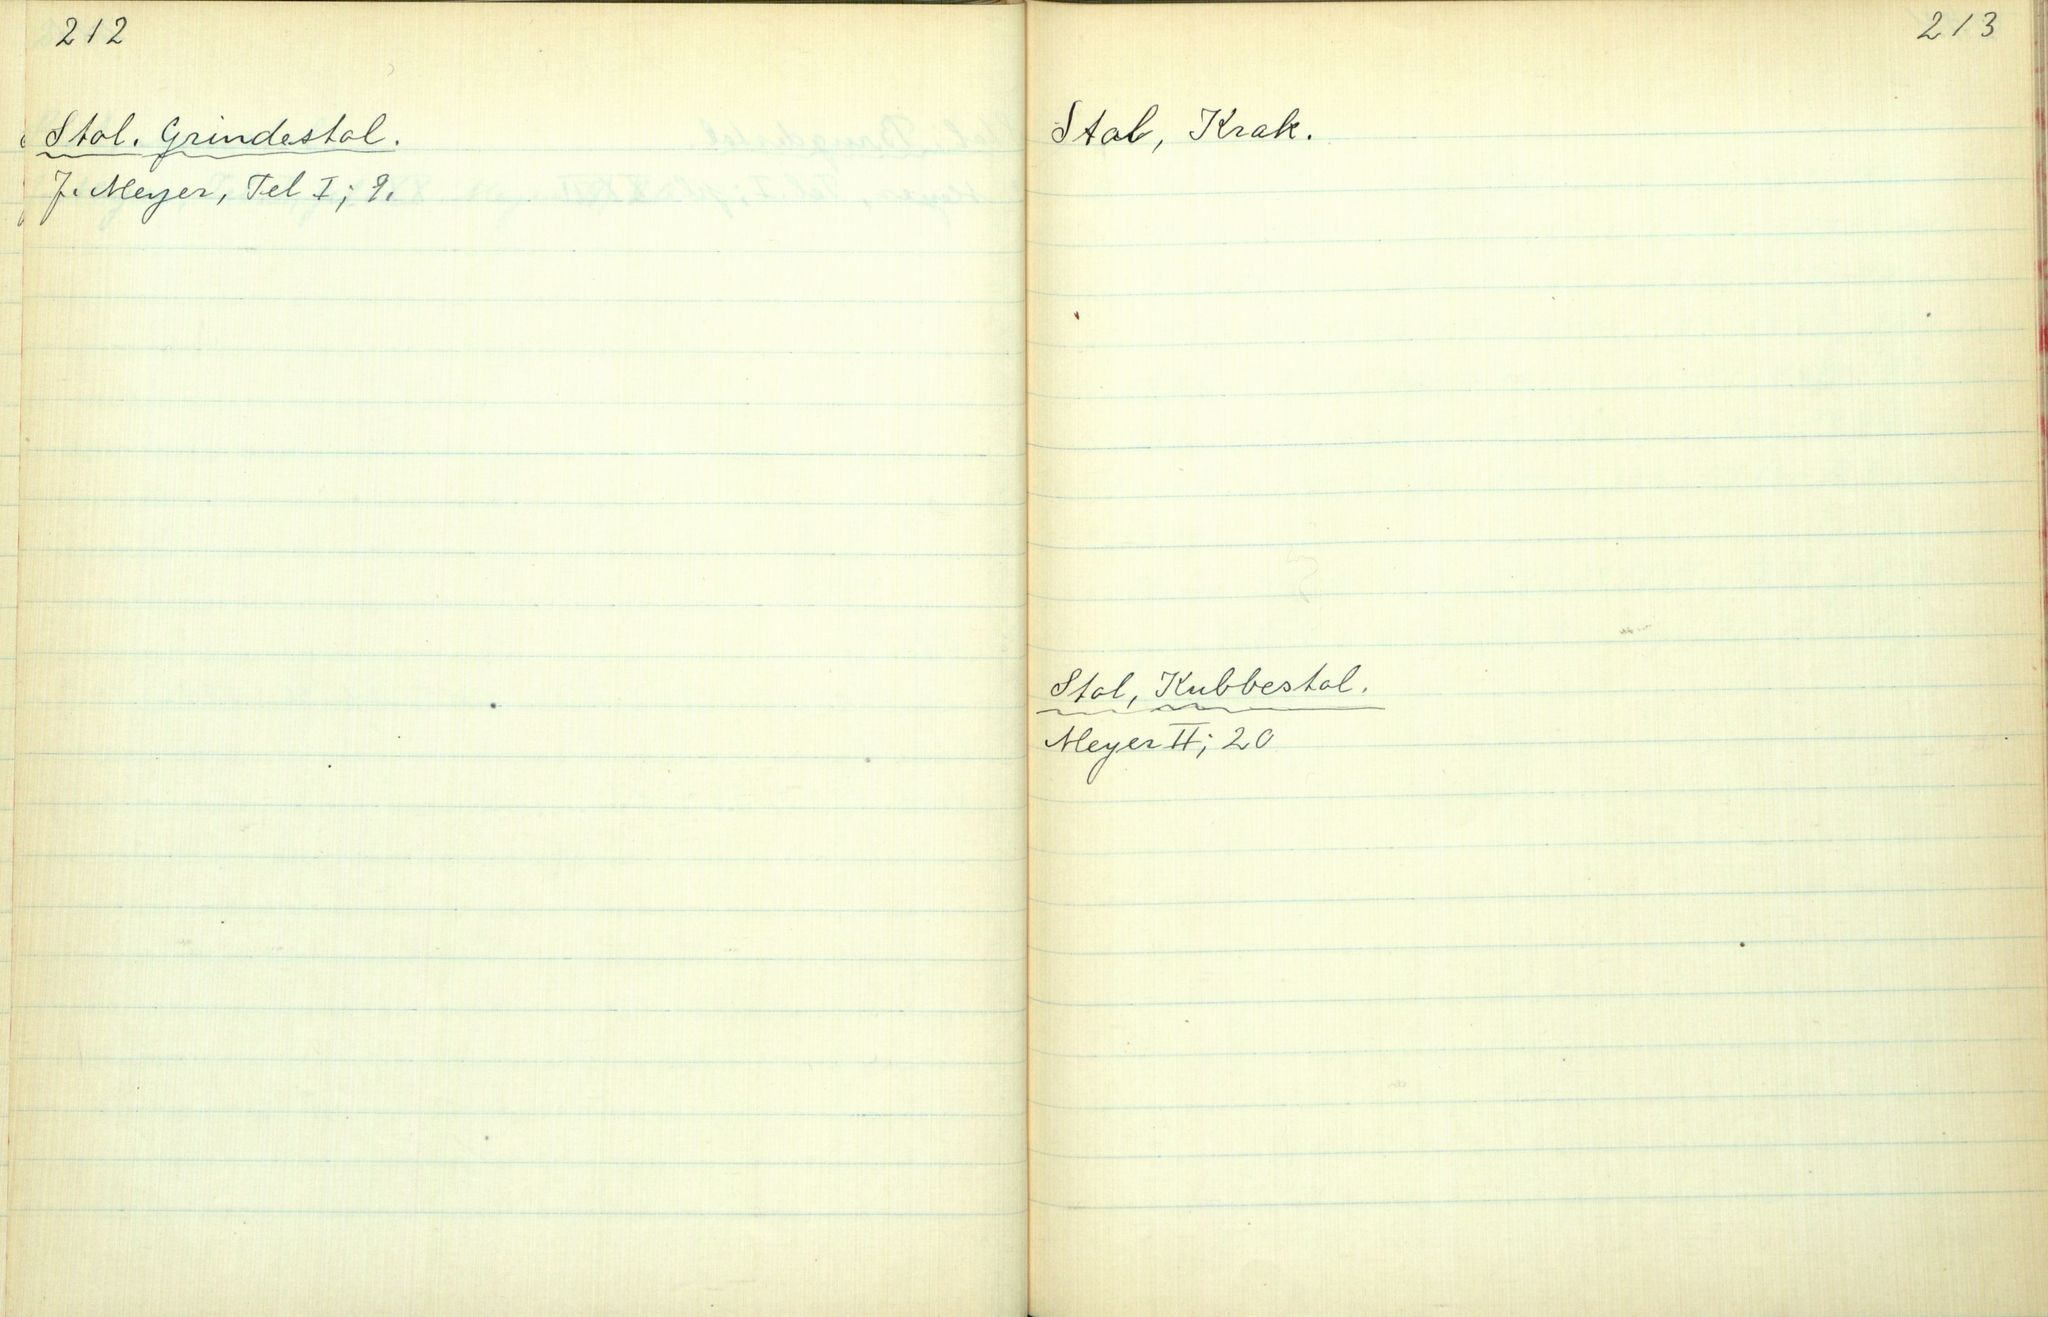 212
Stol. Grindestol.
J. Meyer, Tel I; 9.
213
Stol, Krak.
Stol, Kubbestol.
Meyer II; 20